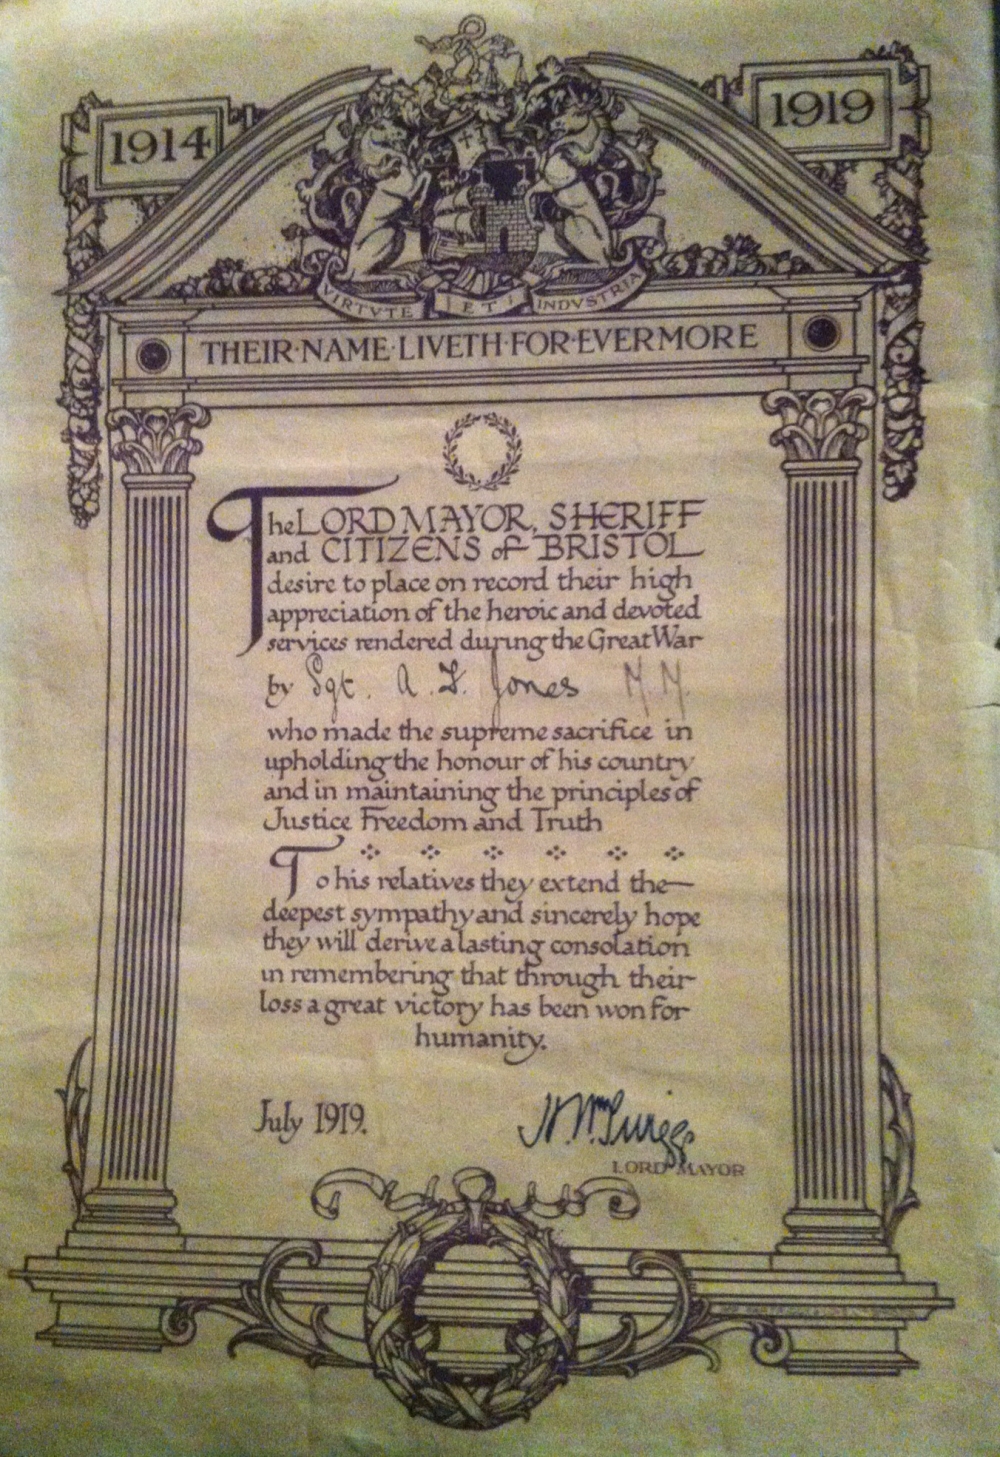 1914
1919
VIRTVTE ET INDVSTRIA
THEIR·NAME·LIVETH·FOR·EVERMORE
The LORD MAYOR, SHERIFF
and CITIZENS of BRISTOL
desire to place on record their high
appreciation of the heroic and devoted
services rendered during the Great War
by Sgt. A. F. Jones M.M.
who made the supreme sacrifice in
upholding the honour of his country
and in maintaining the principles of
Justice Freedom and Truth
To his relatives they extend the
deepest sympathy and sincerely hope
they will derive a lasting consolation
in remembering that through their
loss a great victory has been won for
humanity.
July 1919.
LORD MAYOR